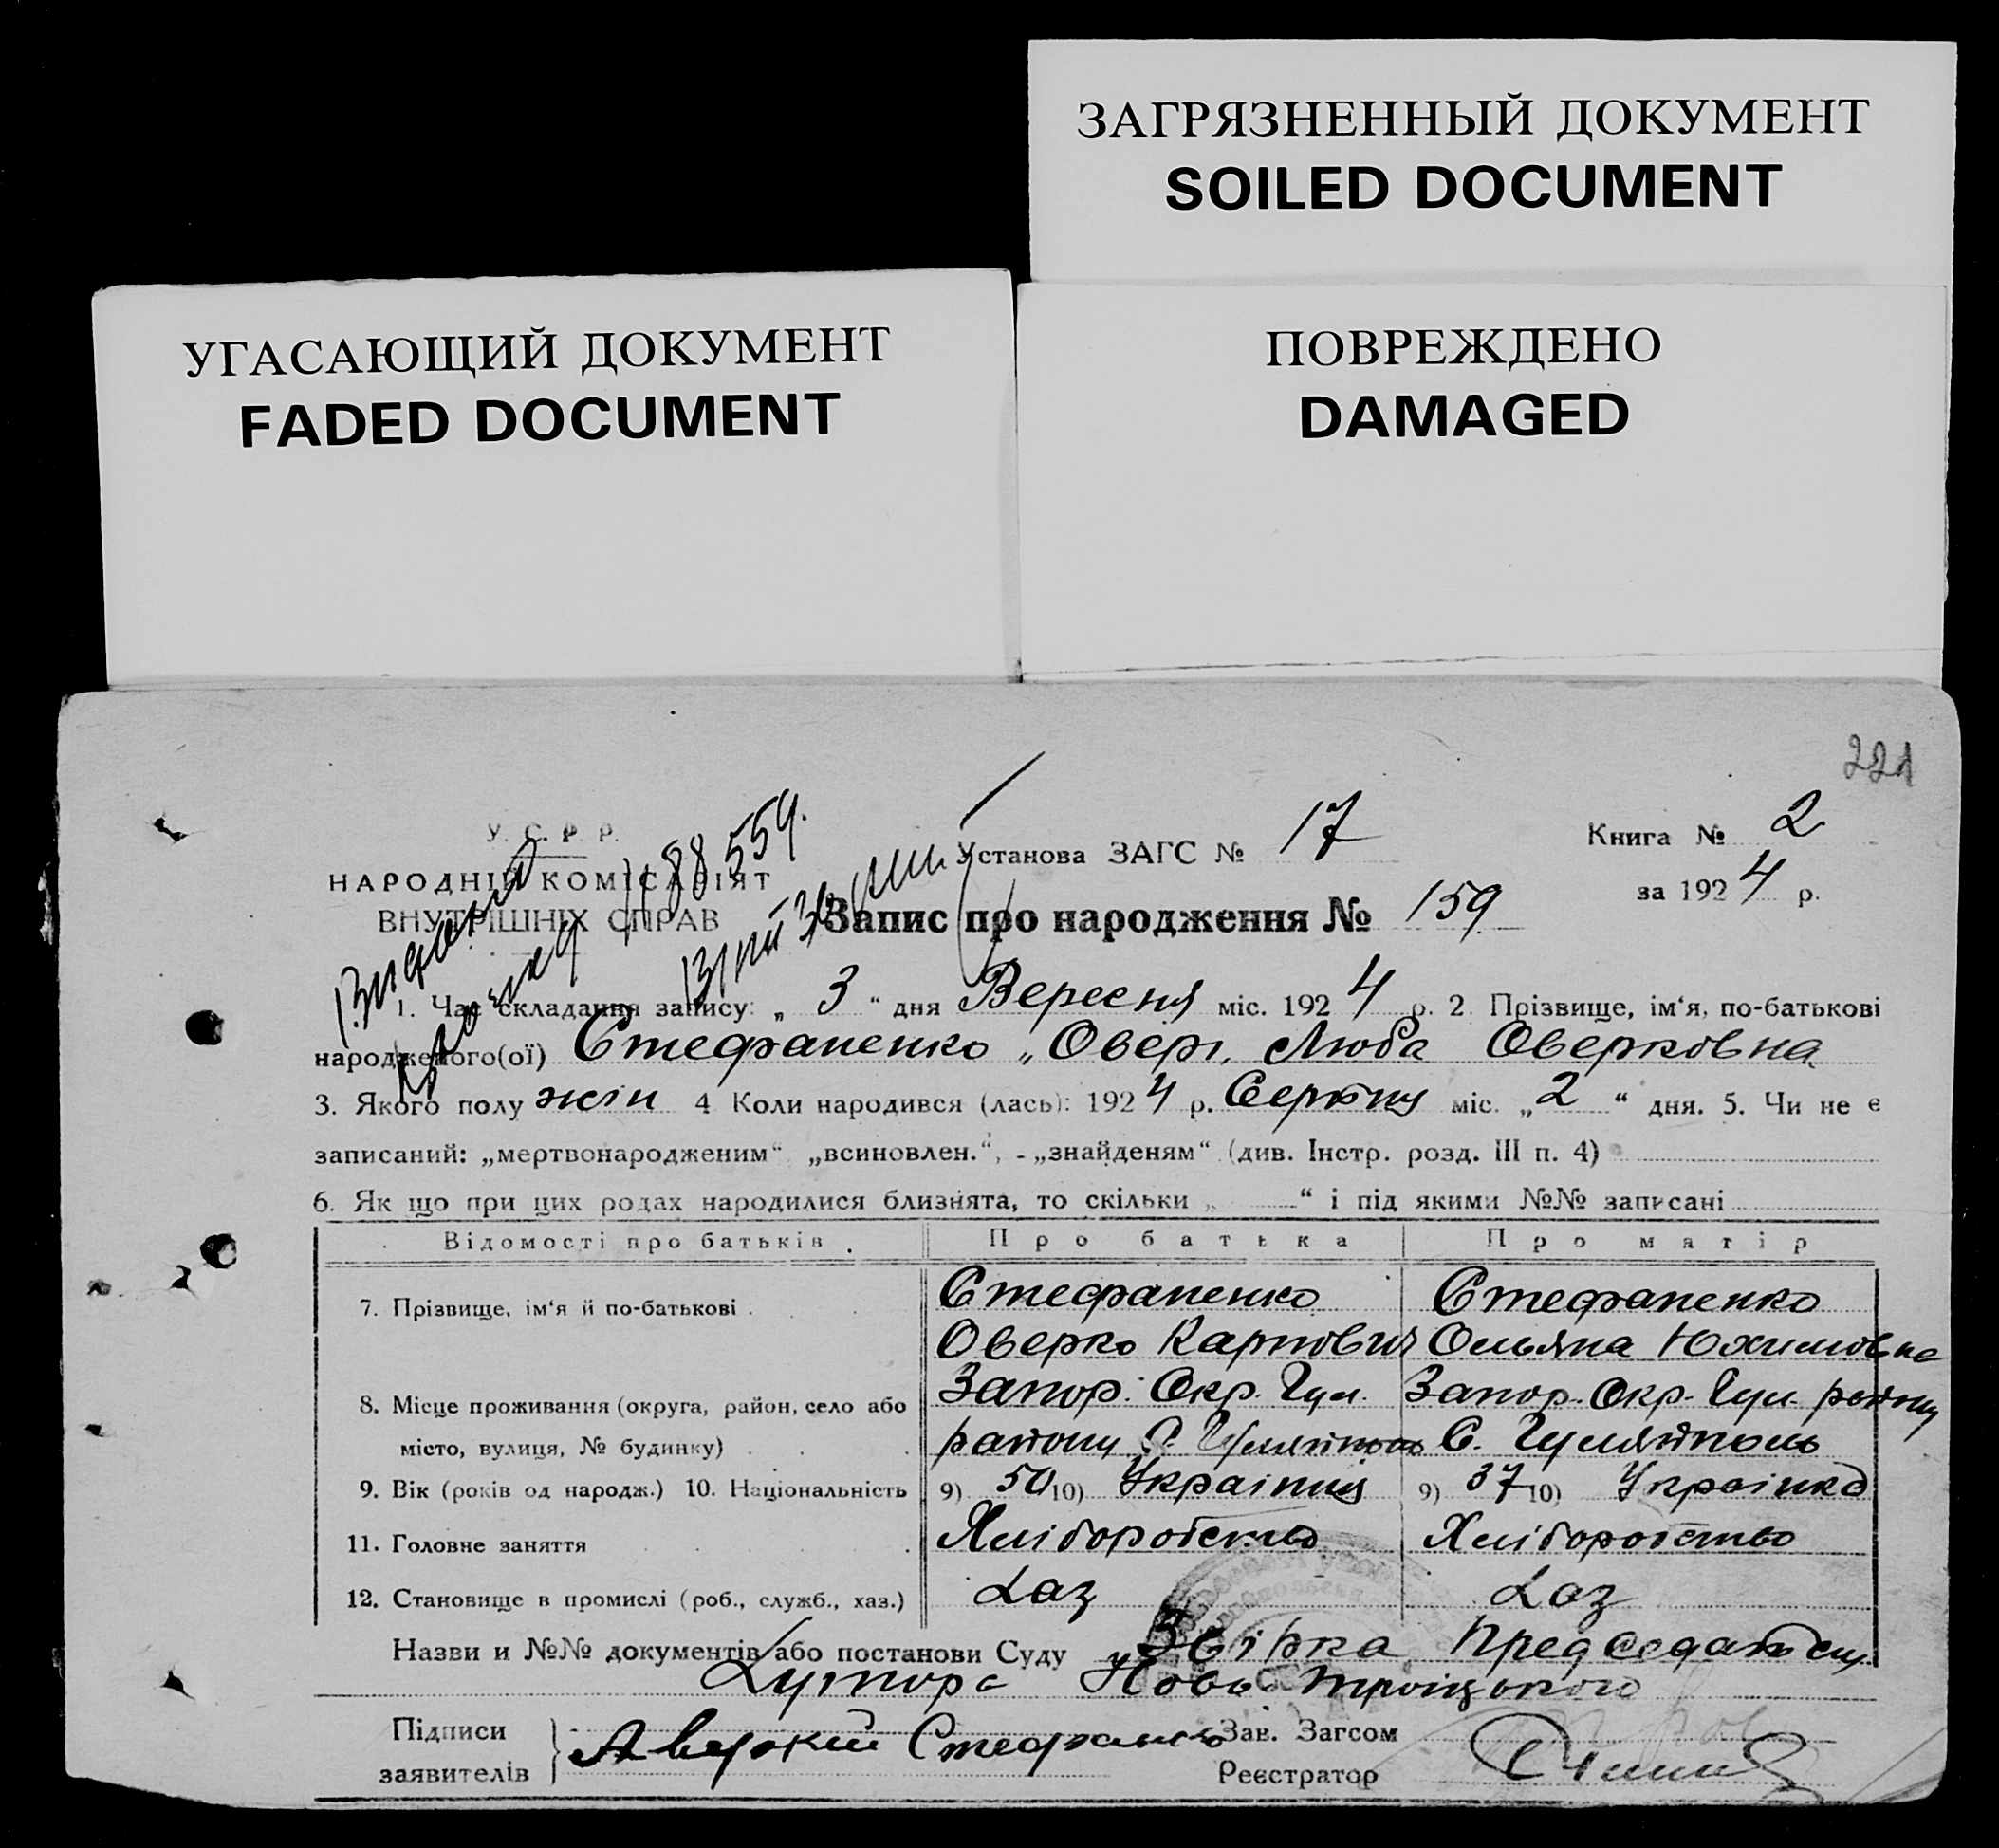 ЗАГРЯЗНЕННЫЙ ДОКУМЕНТ
SOILED DOCUMENT
УГАСАЮЩИЙ ДОКУМЕНТ
FADED DOCUMENT
ПОВРЕЖДЕНО
DAMAGED
221
У. С. Р. Р.
НАРОДНІЙ КОМІСАРІЯТ
ВНУТРІШНІХ СПРАВ
88559.
Установа ЗАГС № 17
Книга № 2
за 1924 р.
Запис про народження № 159
1. Час складання запису: „ 3 “ дня Вересня міс. 1924 р. 2. Прізвище, ім‘я, по-батькові
народженого(ої) Стефаненко Люба Оверковна
3. Якого полу жін 4 Коли народився (лась): 1924 р. Серпня міс. „ 2 “ дня. 5. Чи не є
записаний: „мертвонародженим“ „всиновлен.“, - „знайденям“ (див. Інстр. розд. III п. 4)
6. Як що при цих родах народилися близнята, то скільки „ “ і під якими №№ записані
Відомості про батьків. Про батька Про матір
7. Прізвище, ім‘я й по-батькові Стефаненко Стефаненко
Оверко Карпович Ольяна Юхимовна
8. Місце проживання (округа, район, село або Запор. Окр. Гул. Запор. Окр. Гул. району
місто, вулиця, № будинку) району С. Гуляйполь С. Гуляйполь
9. Вік (років од народж.) 10. Національність 9) 50 10) Українець 9) 37 10) Українка
11. Головне заняття Хлiборобство Хлiборобство
12. Становище в промислі (роб., служб., хаз.) Хаз Хаз
Назви и №№ документів або постанови Суду Звірка
Хутора Ново Троіцького
Підписи Аверкий Зав. Загсом
заявителів Реєстратор